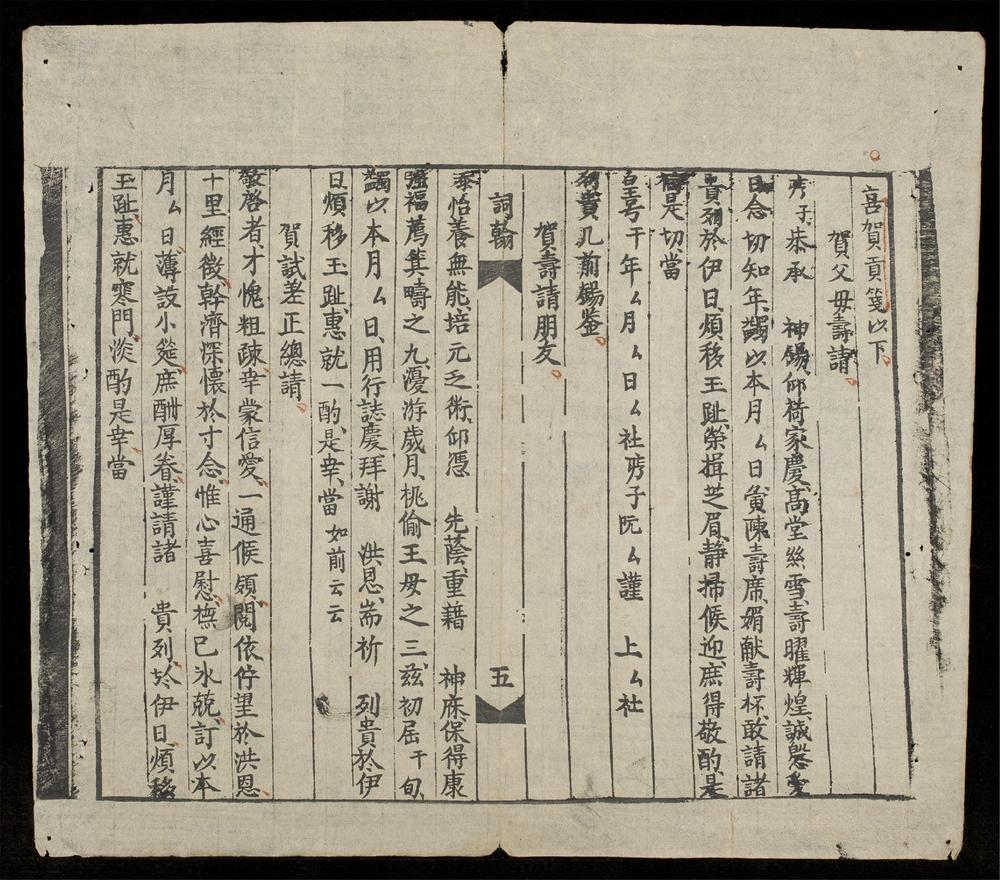 喜賀貢箋以下
賀父母壽請
弟子恭承 神錫仰荷家慶高堂絲雪壽曜輝煌誠慇愛
日念切知年蠲以本月厶日寅陳壽席媚献壽杯敢請諸
貴列於伊日煩移玉趾榮揖芝眉靜掃候迎庶得敬酌是
是切當
皇号干年厶月厶日厶社弟子阮厶謹 上厶社
列貴几前錫鉴
賀壽請朋友
詞翰
忝怡養無能培元乏術仰憑 先蔭重藉 神庥保得康
彊福薦箕疇之九漫游歲月桃偷王母之三茲初屆干旬
蠲以本月厶日用行誌慶拜謝 洪恩耑祈 列貴於伊
日煩移玉趾惠就一酌是幸當 如前云云
五
賀試差正總請
敬啓者才愧粗疎幸蒙信愛一通候領閱依侍望於洪恩
十里經徵幹濟深懷於寸念惟心喜慰撫已氷兢訂以本
月厶日薄設小筵庶酬厚眷謹請諸 貴列於伊日煩移
玉趾惠就寒門淡酌是幸當